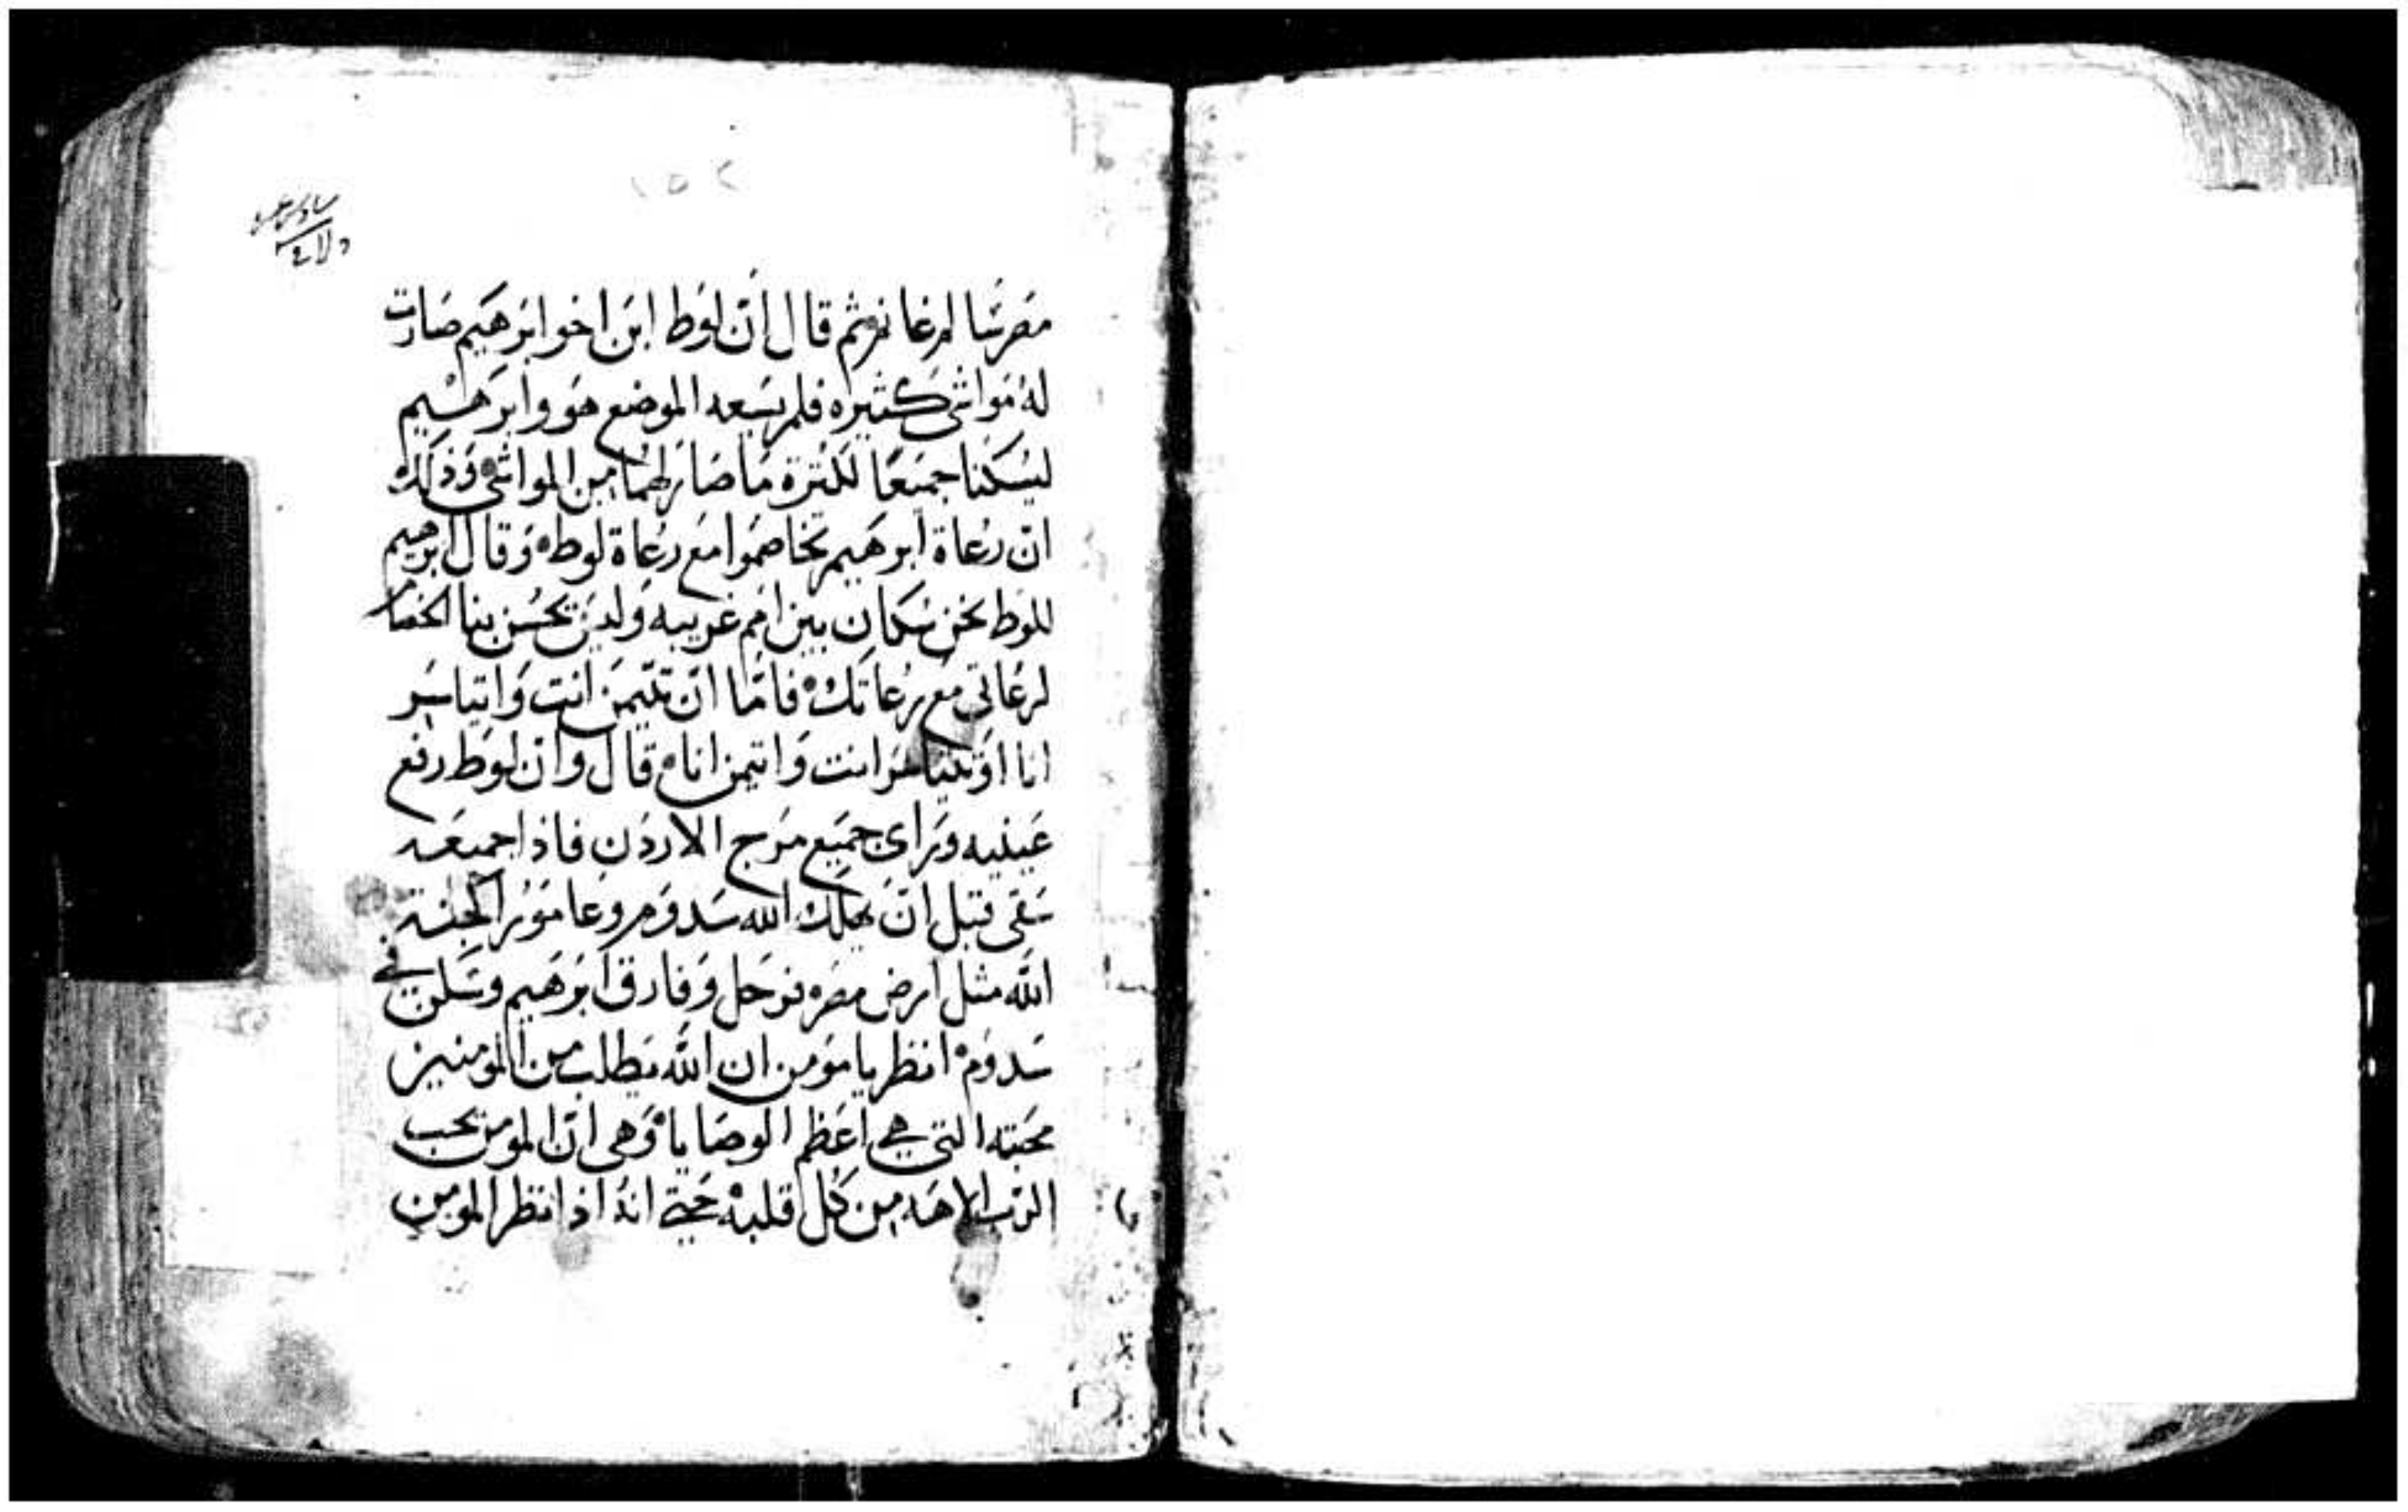 ١٥٢
قال ان لوط ابن اخو ابرهيم صارت
له مواشى كثيره فلم يسعه الموضع هو وابرهيم
ليسكنا جميعًا لكثرة ما صار لهما من المواشى وذلك
انّ رعاة ابرهيم تخاصموا مع رعاة لوط ه وقال ابرهيم
للوط نحن سكان بين امم غريبه وليس يحسن بنا الخصام
لرعاتي مع رعاتك ه فامّا انّ تتيمن انت واتياسر
انا او تتياسر انت واتيمن انا ه قال وان لوط رفع
عينيه وراى جميع مرج الاردن فاذا جميعه
سقى قبل انّ يهلك الله سدوم وعامورا كجنة
الله مثل ارض مصر ه فرحل وفارق ابرهيم وسكن في
سدوم ه انظر يا مومن ان الله يطلب من المومنين
محبته التي هي اعظم الوصايا ه وهى انّ المومن يحب
الرب الاهه من كل قلبه ه حتى انه اذا نظر المومن